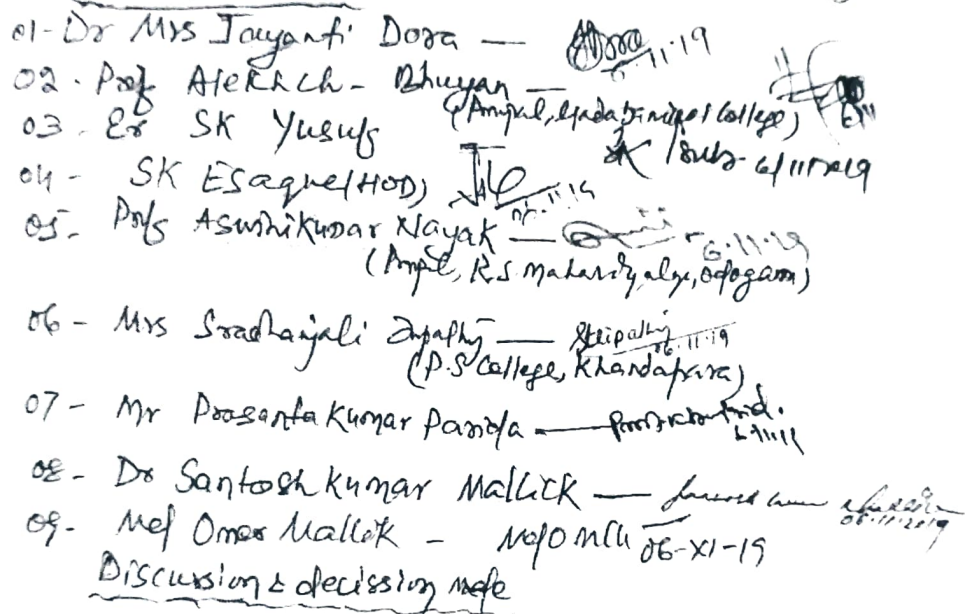 01- Dr Mrs Jayanti Dora — 6.11.19
02. Prof Alekh ch- Bhuyan —
(Principal, College)
03. Er SK Yusuf 6/11/2019
04 - SK Esaque (HOD) 06.11.19
05- Prof Aswini Kumar Nayak — 6.11.19
(R.S. Mahavidyalya, Odogaon)
06 - Mrs Sradhanjali Tripathy — STripathy 06.11.19
(P.S College, Khandapara)
07 - Mr Prasanta Kumar Parida —
08 - Dr Santosh Kumar Mallick — 06.11.2019
09- Md Omer Mallik - 06-XI-19
Discussion & decission made